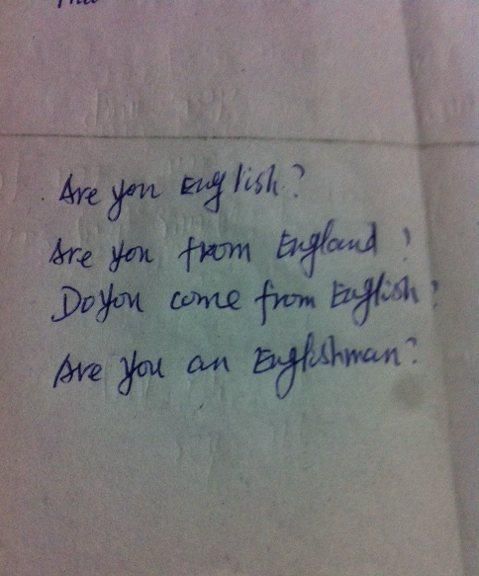 Are you English?
Are you from England ?
Do you come from English?
Are you an Englishman?